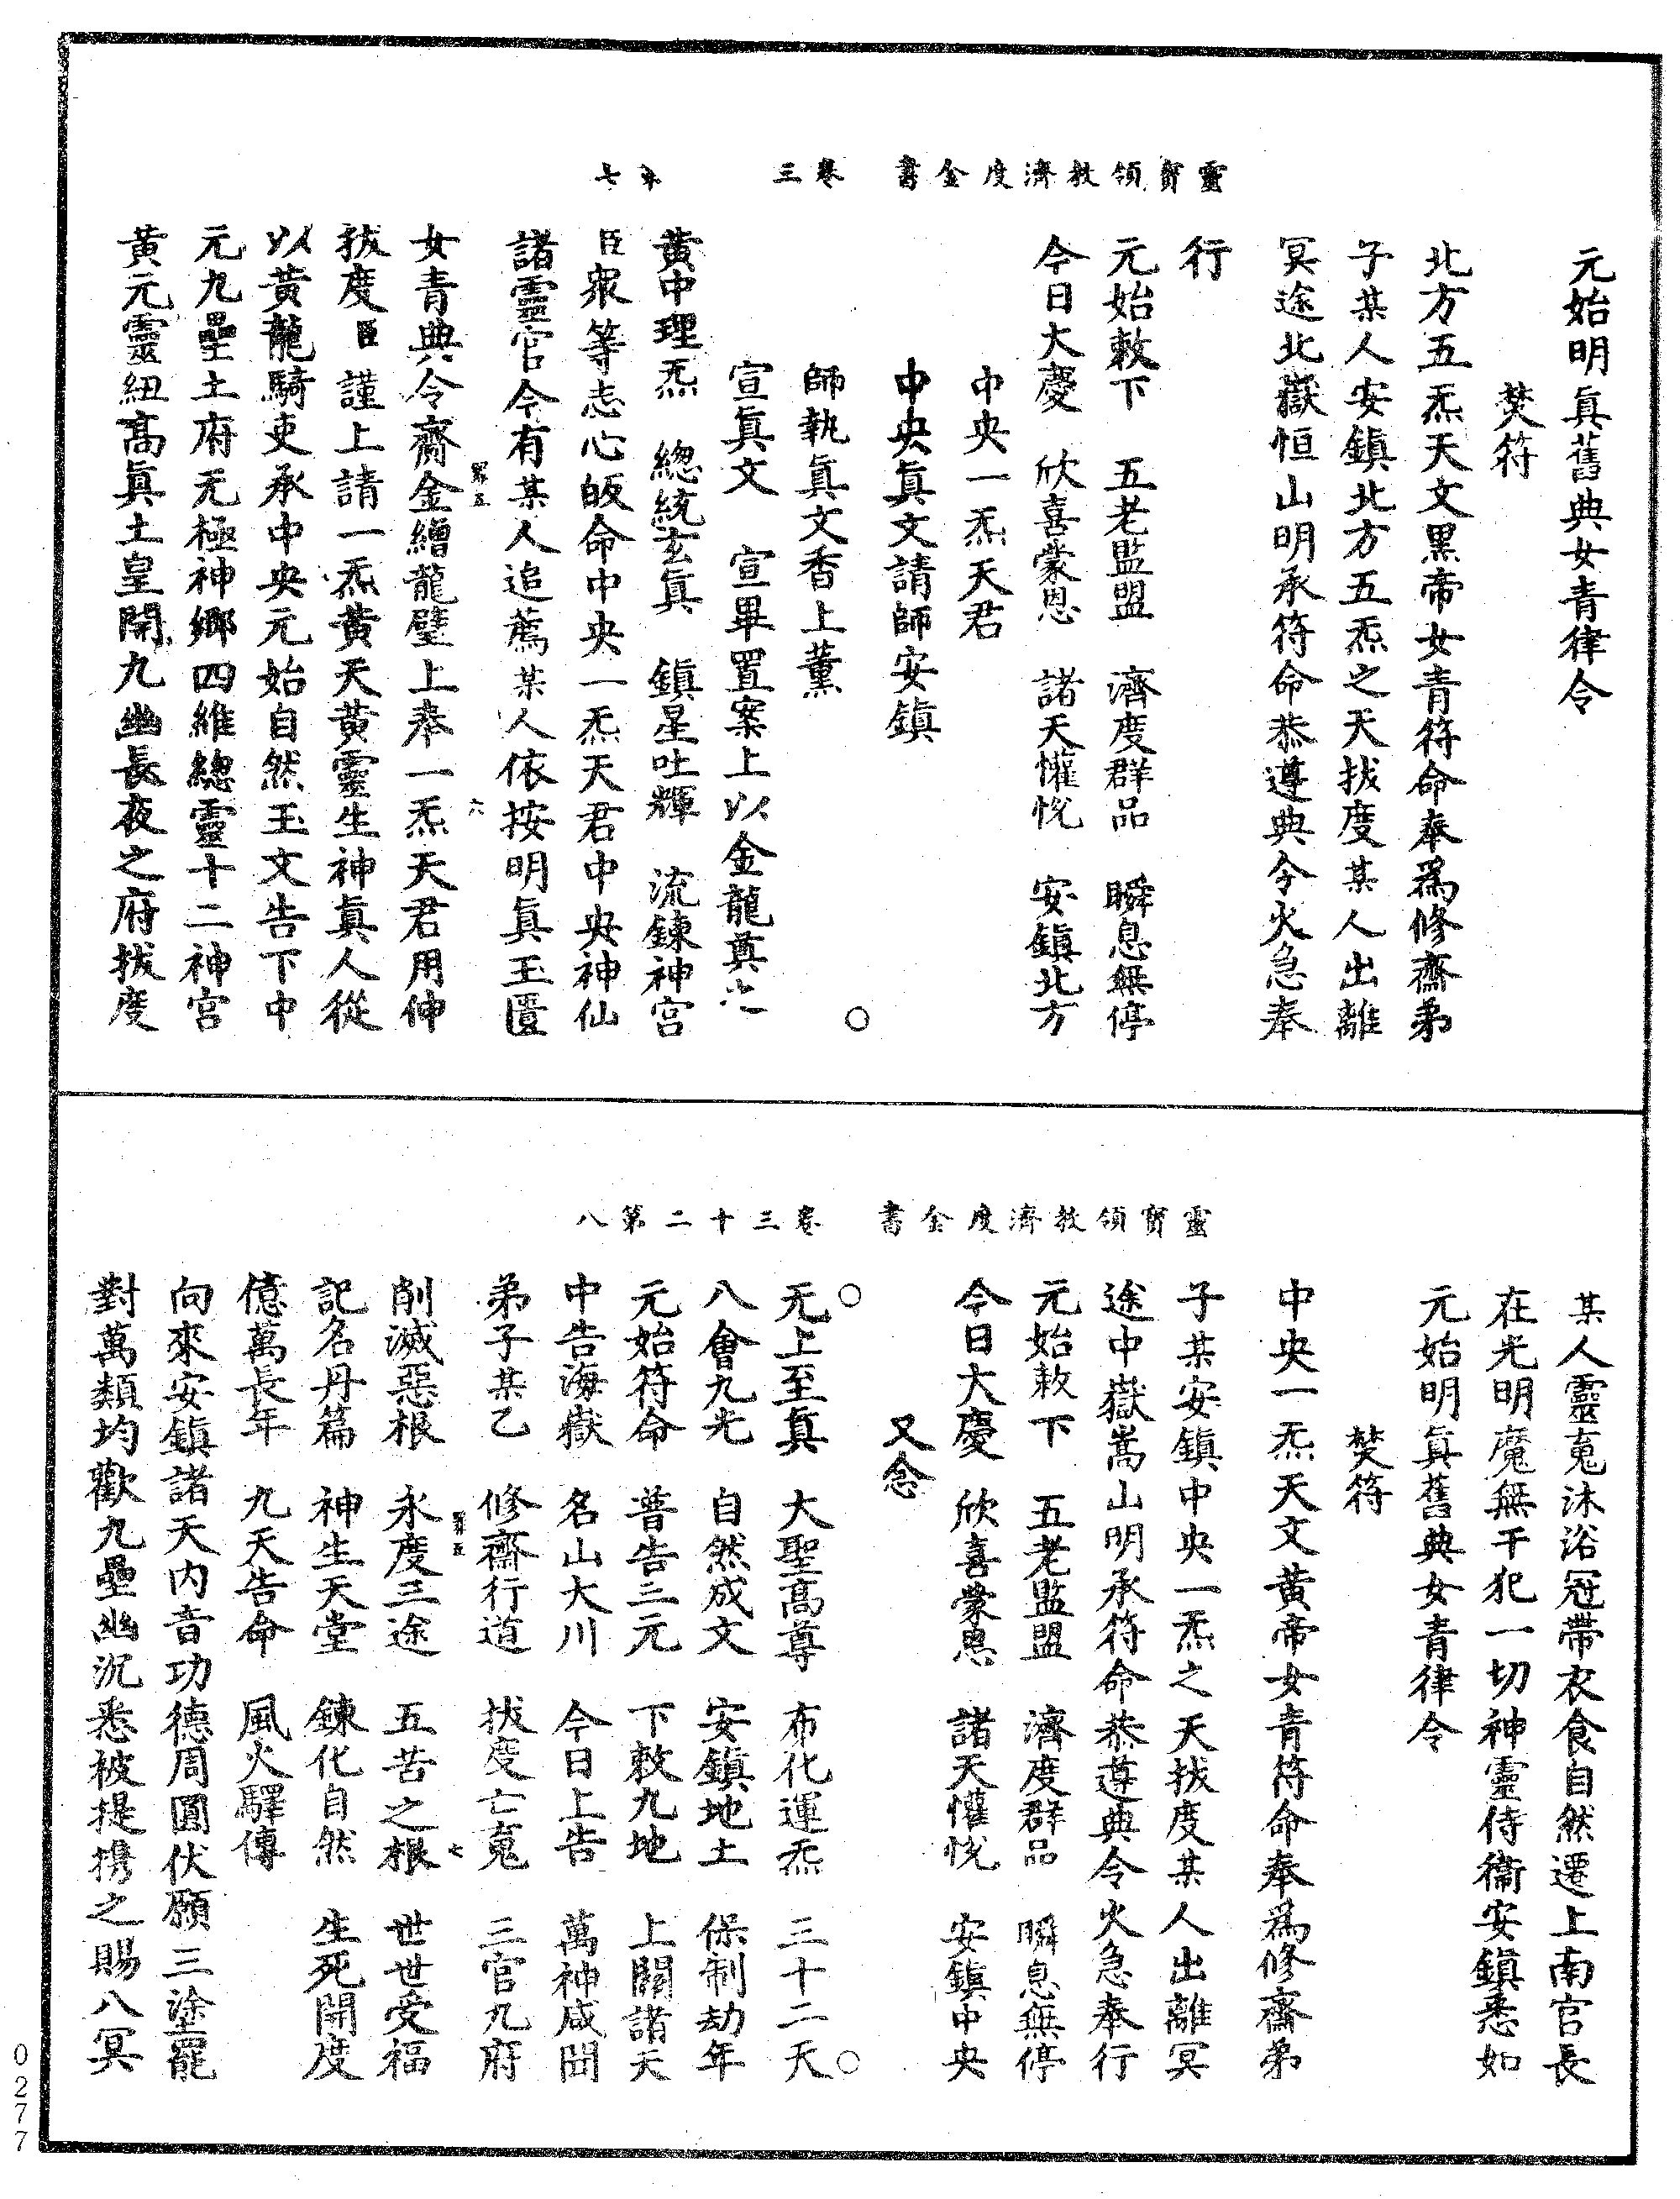 靈寶領教濟度金書　卷三　第七
元始明眞舊典女青律令
焚符
北方五炁天文黑帝女青符命奉爲修齋弟
子某人安鎮北方五炁之天拔度某人出離
冥途北嶽恒山明承符命恭遵典令火急奉
行
元始敕下　五老監盟　濟度群品　瞬息無停
今日大慶　欣喜蒙恩　諸天懽悅　安鎮北方
中央一炁天君
中央眞文請師安鎮
師執眞文香上薰　○
宣眞文　宣畢置案上以金龍奠之
黄中理炁　總統玄眞　鎮星吐輝　流鍊神宮
臣衆等志心皈命中央一炁天君中央神仙
諸靈官今有某人追薦某人依按明眞玉匱
女青典令齋金繒龍璧上奉一炁天君用伸
拔度臣謹上請一炁黄天黄靈生神眞人從
以黄龍騎吏承中央元始自然玉文告下中
元九壘土府元極神鄉四維總靈十二神宮
黄元靈紐高眞土皇開九幽長夜之府拔度
靈寶領教濟度金書　卷三十二第八
某人靈䰟沐浴冠帶衣食自然遷上南宮長
在光明魔無干犯一切神靈侍衞安鎮悉如
元始明眞舊典女青律令
焚符
中央一炁天文黄帝女青符命奉爲修齋弟
子某安鎮中央一炁之天拔度某人出離冥
途中嶽嵩山明承符命恭遵典令火急奉行
元始敕下　五老監盟　濟度群品　瞬息無停
今日大慶　欣喜蒙恩　諸天懽悅　安鎮中央
又念
○　○
无上至眞　大聖高尊　布化運炁　三十二天
八會九光　自然成文　安鎮地土　保制劫年
元始符命　普告三元　下敕九地　上關諸天
中告海嶽　名山大川　今日上告　萬神咸聞
弟子某乙　修齋行道　拔度亡䰟　三官九府
削滅惡根　永度三途　五苦之根　世世受福
記名丹篇　神生天堂　鍊化自然　生死開度
億萬長年　九天告命　風火驛傳
向來安鎮諸天内音功德周圓伏願三塗罷
對萬類均歡九壘幽沉悉被提携之賜八冥
0277